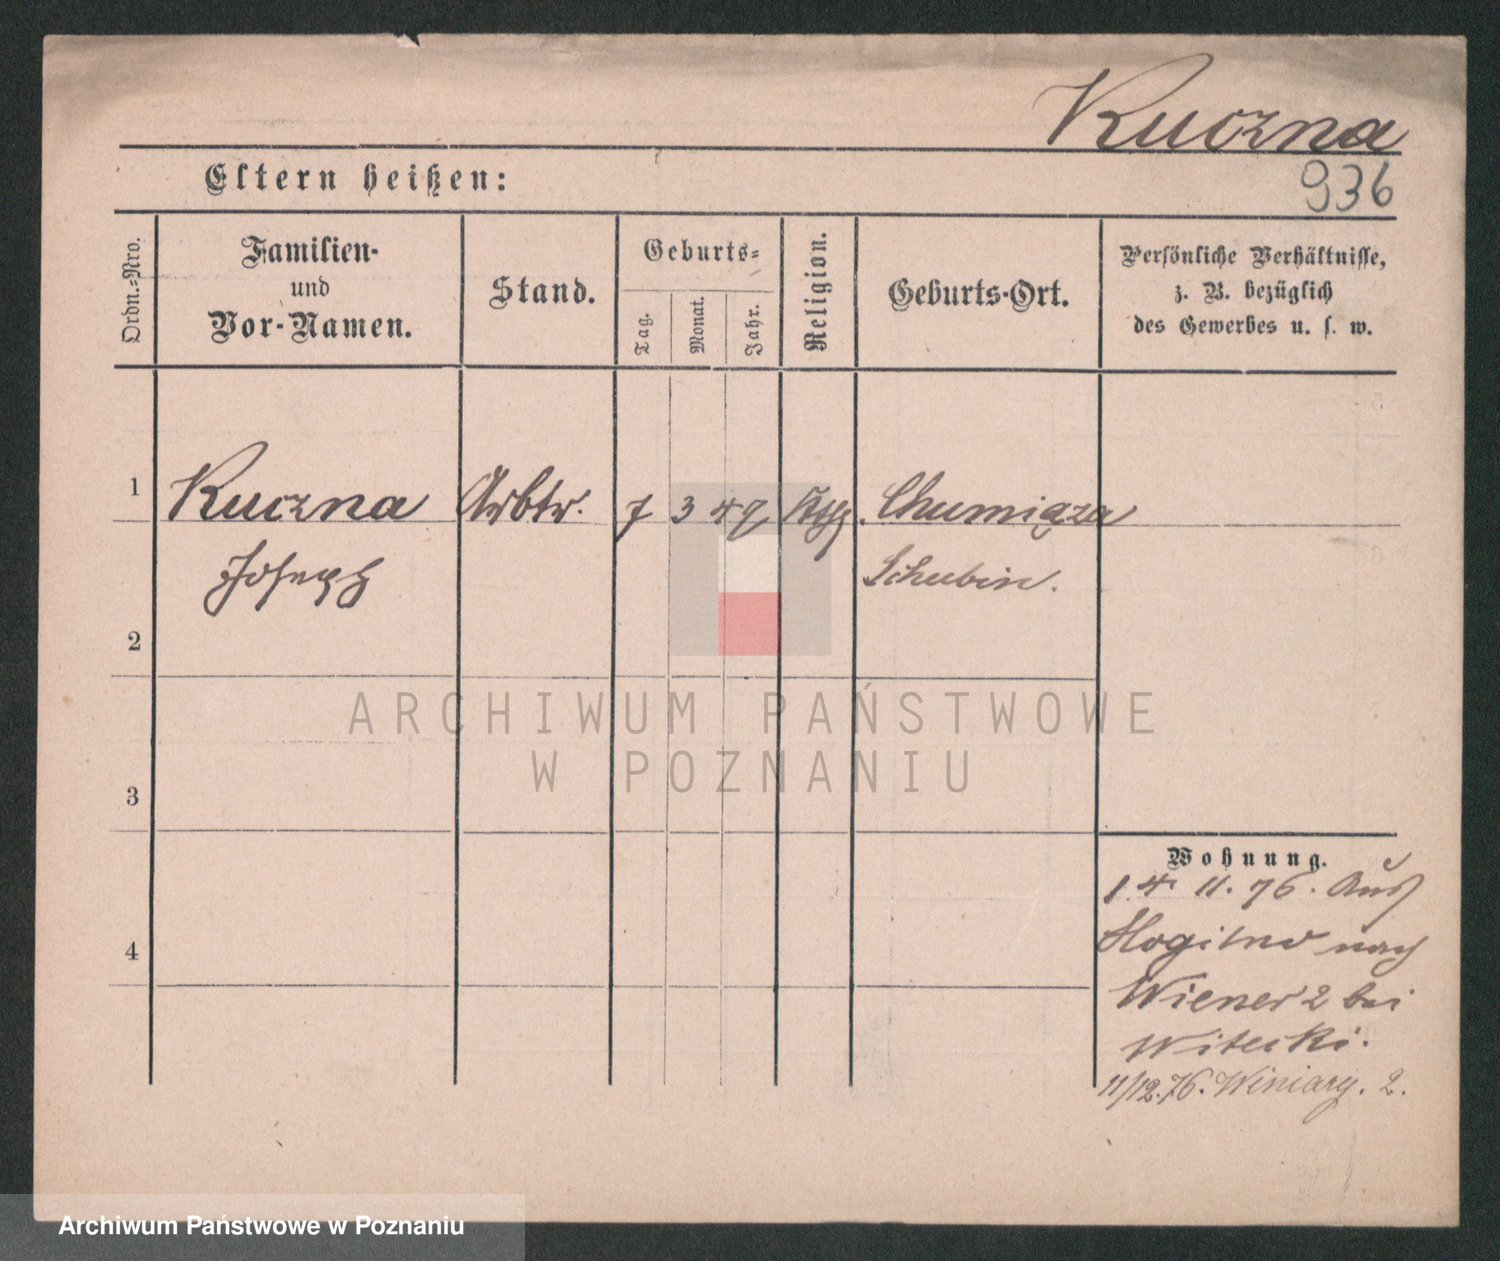 Kuczna
936
Eltern heißen:
Ordn.-Nro.
Familien-
und
Vor-Namen.
Stand.
Geburts-
Tag.
Monat.
Jahr.
Religion.
Geburts-Ort.
Persönliche Verhältnisse,
z. B. bezüglich
des Gewerbes u. s. w.
1
Kuczna
Joseph
Arbtr.
7
3
47
Kth.
Chumiąza
Schubin.
2
3
4
Wohnung.
14 11. 76. Aus
Mogilno nach
Wiener 2 bei
Witecki.
11/12.76. Winiary. 2.
ARCHIWUM PAŃSTWOWE
W POZNANIU
Archiwum Państwowe w Poznaniu